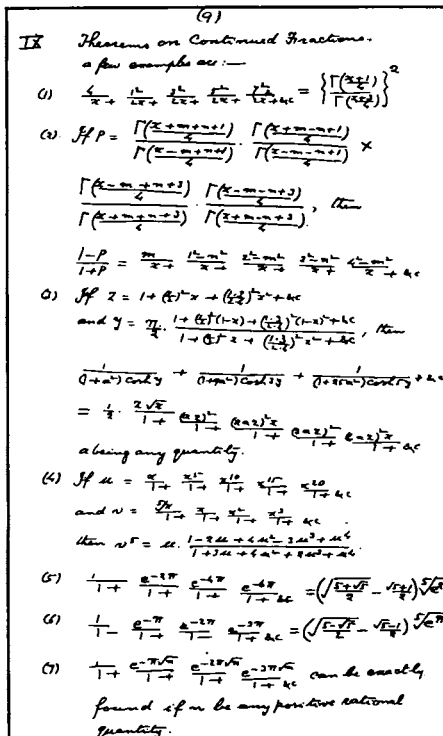 (9)
IX Theorems on Continued Fractions.
a few examples are :—
(1) 4/x + 1²/2x + 3²/2x + 5²/2x + 7²/2x + &c = {Γ((x+1)/4)/Γ((x+3)/4)}²
(2) If P = Γ((x+m+n+1)/4)/Γ((x-m+n+1)/4) · Γ((x+m-n+1)/4)/Γ((x-m-n+1)/4) ×
Γ((x-m+n+3)/4)/Γ((x+m+n+3)/4) · Γ((x-m-n+3)/4)/Γ((x+m-n+3)/4), then
(1-P)/(1+P) = m/x + 1²-n²/x + 2²-m²/x + 3²-n²/x + 4²-m²/x + &c
(3) If z = 1 + (1/2)²x + (1·3/2·4)²x² + &c
and y = π/2 · (1 + (1/2)²(1-x) + (1·3/2·4)²(1-x)² + &c)/(1 + (1/2)²x + (1·3/2·4)²x² + &c), then
1/((1+a²) cosh y) + 1/((1+9a²) cosh 3y) + 1/((1+25a²) cosh 5y) + &c
= 1/2 · z√x/1 + (az)²/1 + (2az)²x/1 + (3az)²/1 + (4az)²x/1 + &c
a being any quantity.
(4) If u = x/1 + x⁵/1 + x¹⁰/1 + x¹⁵/1 + x²⁰/1 + &c
and v = ⁵√x/1 + x/1 + x²/1 + x³/1 + &c
then v⁵ = u · (1-2u+4u²-3u³+u⁴)/(1+3u+4u²+2u³+u⁴)
(5) 1/1 + e^(-2π)/1 + e^(-4π)/1 + e^(-6π)/1 + &c = (√((5+√5)/2) - (√5+1)/2) ⁵√e^(2π)
(6) 1/1 - e^(-π)/1 + e^(-2π)/1 - e^(-3π)/1 + &c = (√((5-√5)/2) - (√5-1)/2) ⁵√e^π
(7) 1/1 + e^(-π√n)/1 + e^(-2π√n)/1 + e^(-3π√n)/1 + &c can be exactly
found if n be any positive rational
quantity.